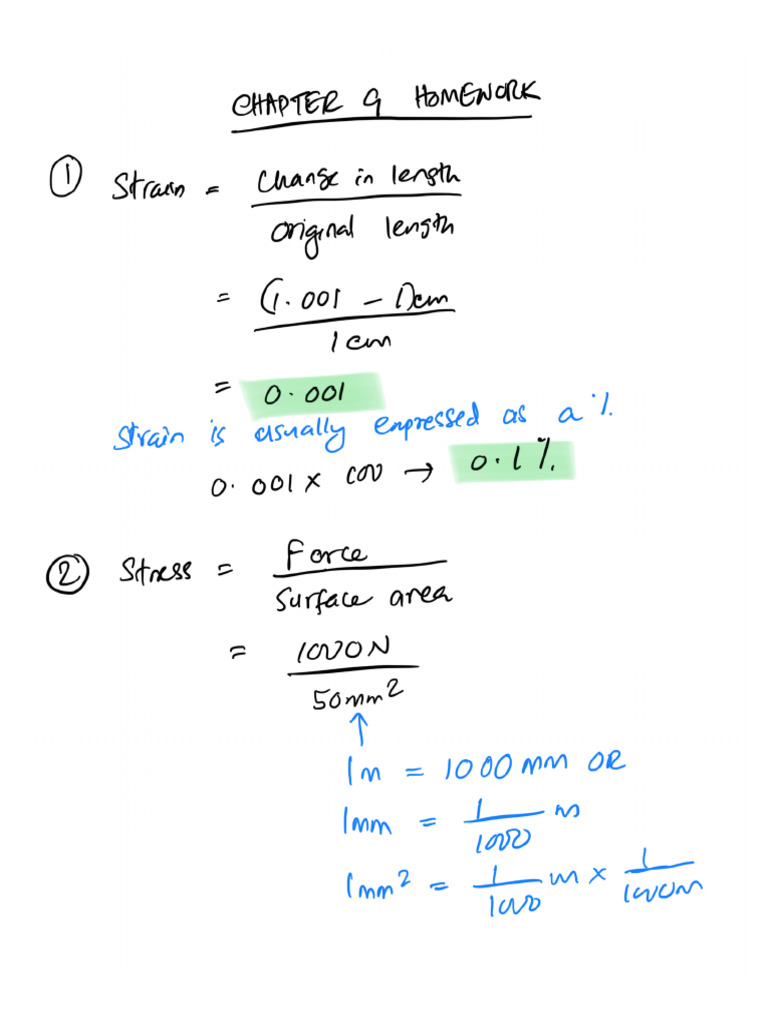 CHAPTER 9 HOMEWORK
① Strain = Change in length / original length
= (1.001 - 1)cm / 1 cm
= 0.001
Strain is usually expressed as a %.
0.001 x 100 → 0.1%.
② Stress = Force / Surface area
= 1000N / 50mm²
↑
1m = 1000mm OR
1mm = 1/1000 m
1mm² = 1/1000 m x 1/1000 m